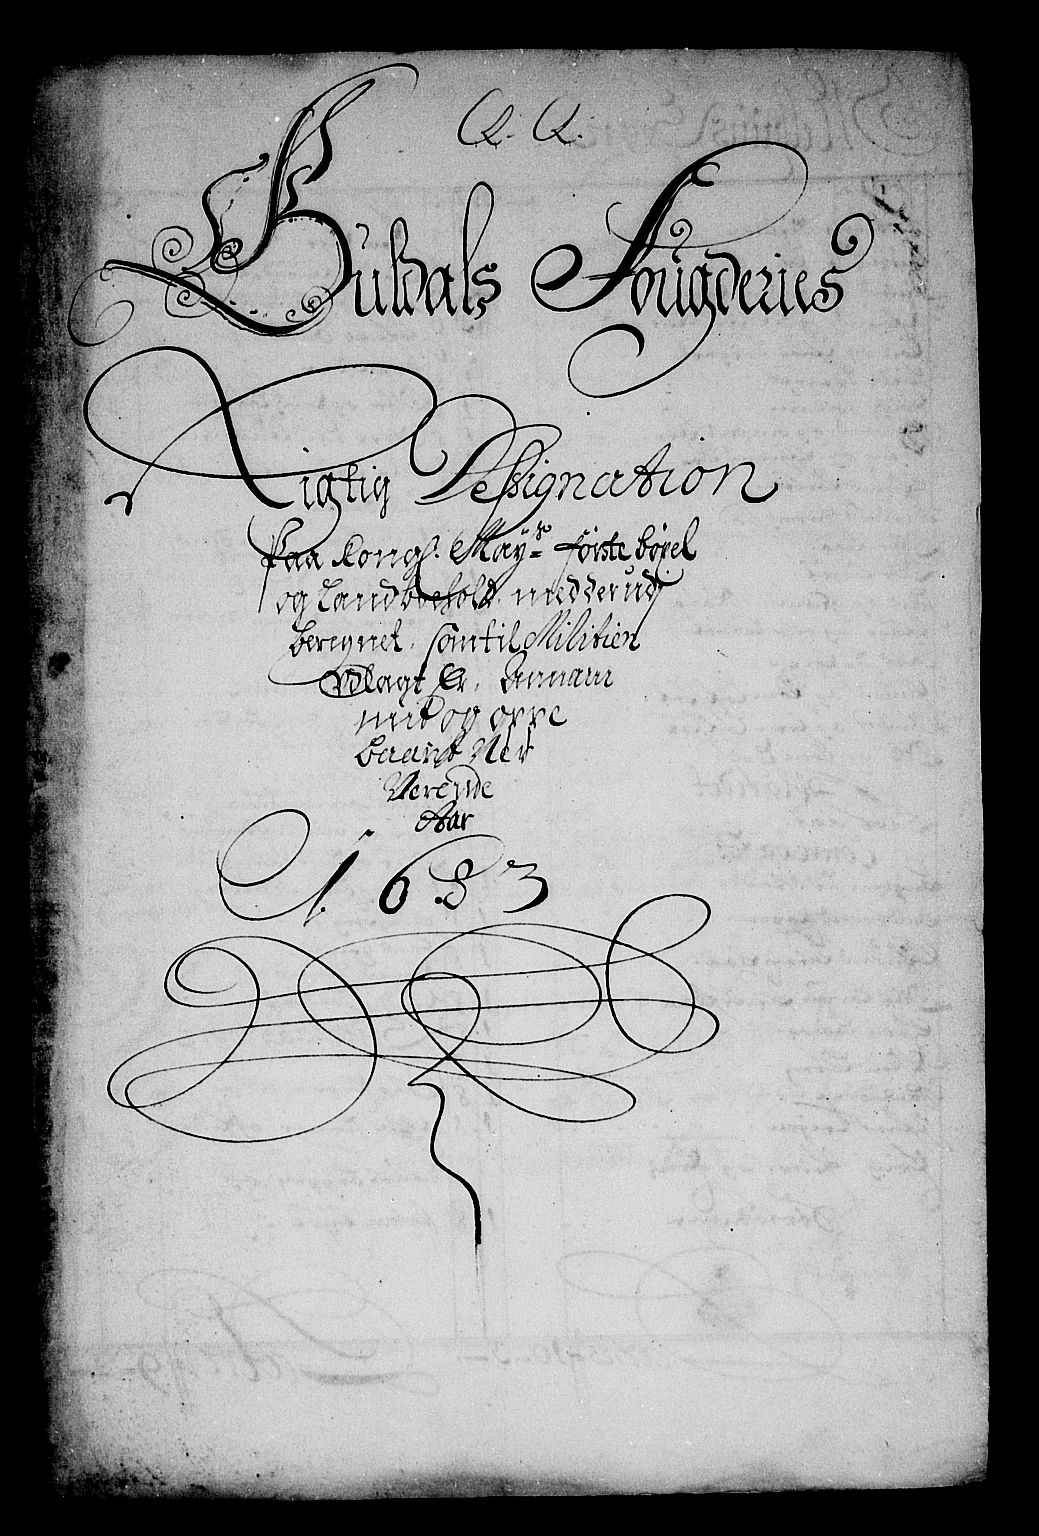 Q. Q.
Guldals Fougderies
Rigtig Deßignation
Paa Kongl. Mayᵗˢ förste böxel
og Landboehold, medderudj
beregnet, sömtil Militien
Udlagt Er, Annam
mit og opre
baaret Ner
Verende
Aar
1683